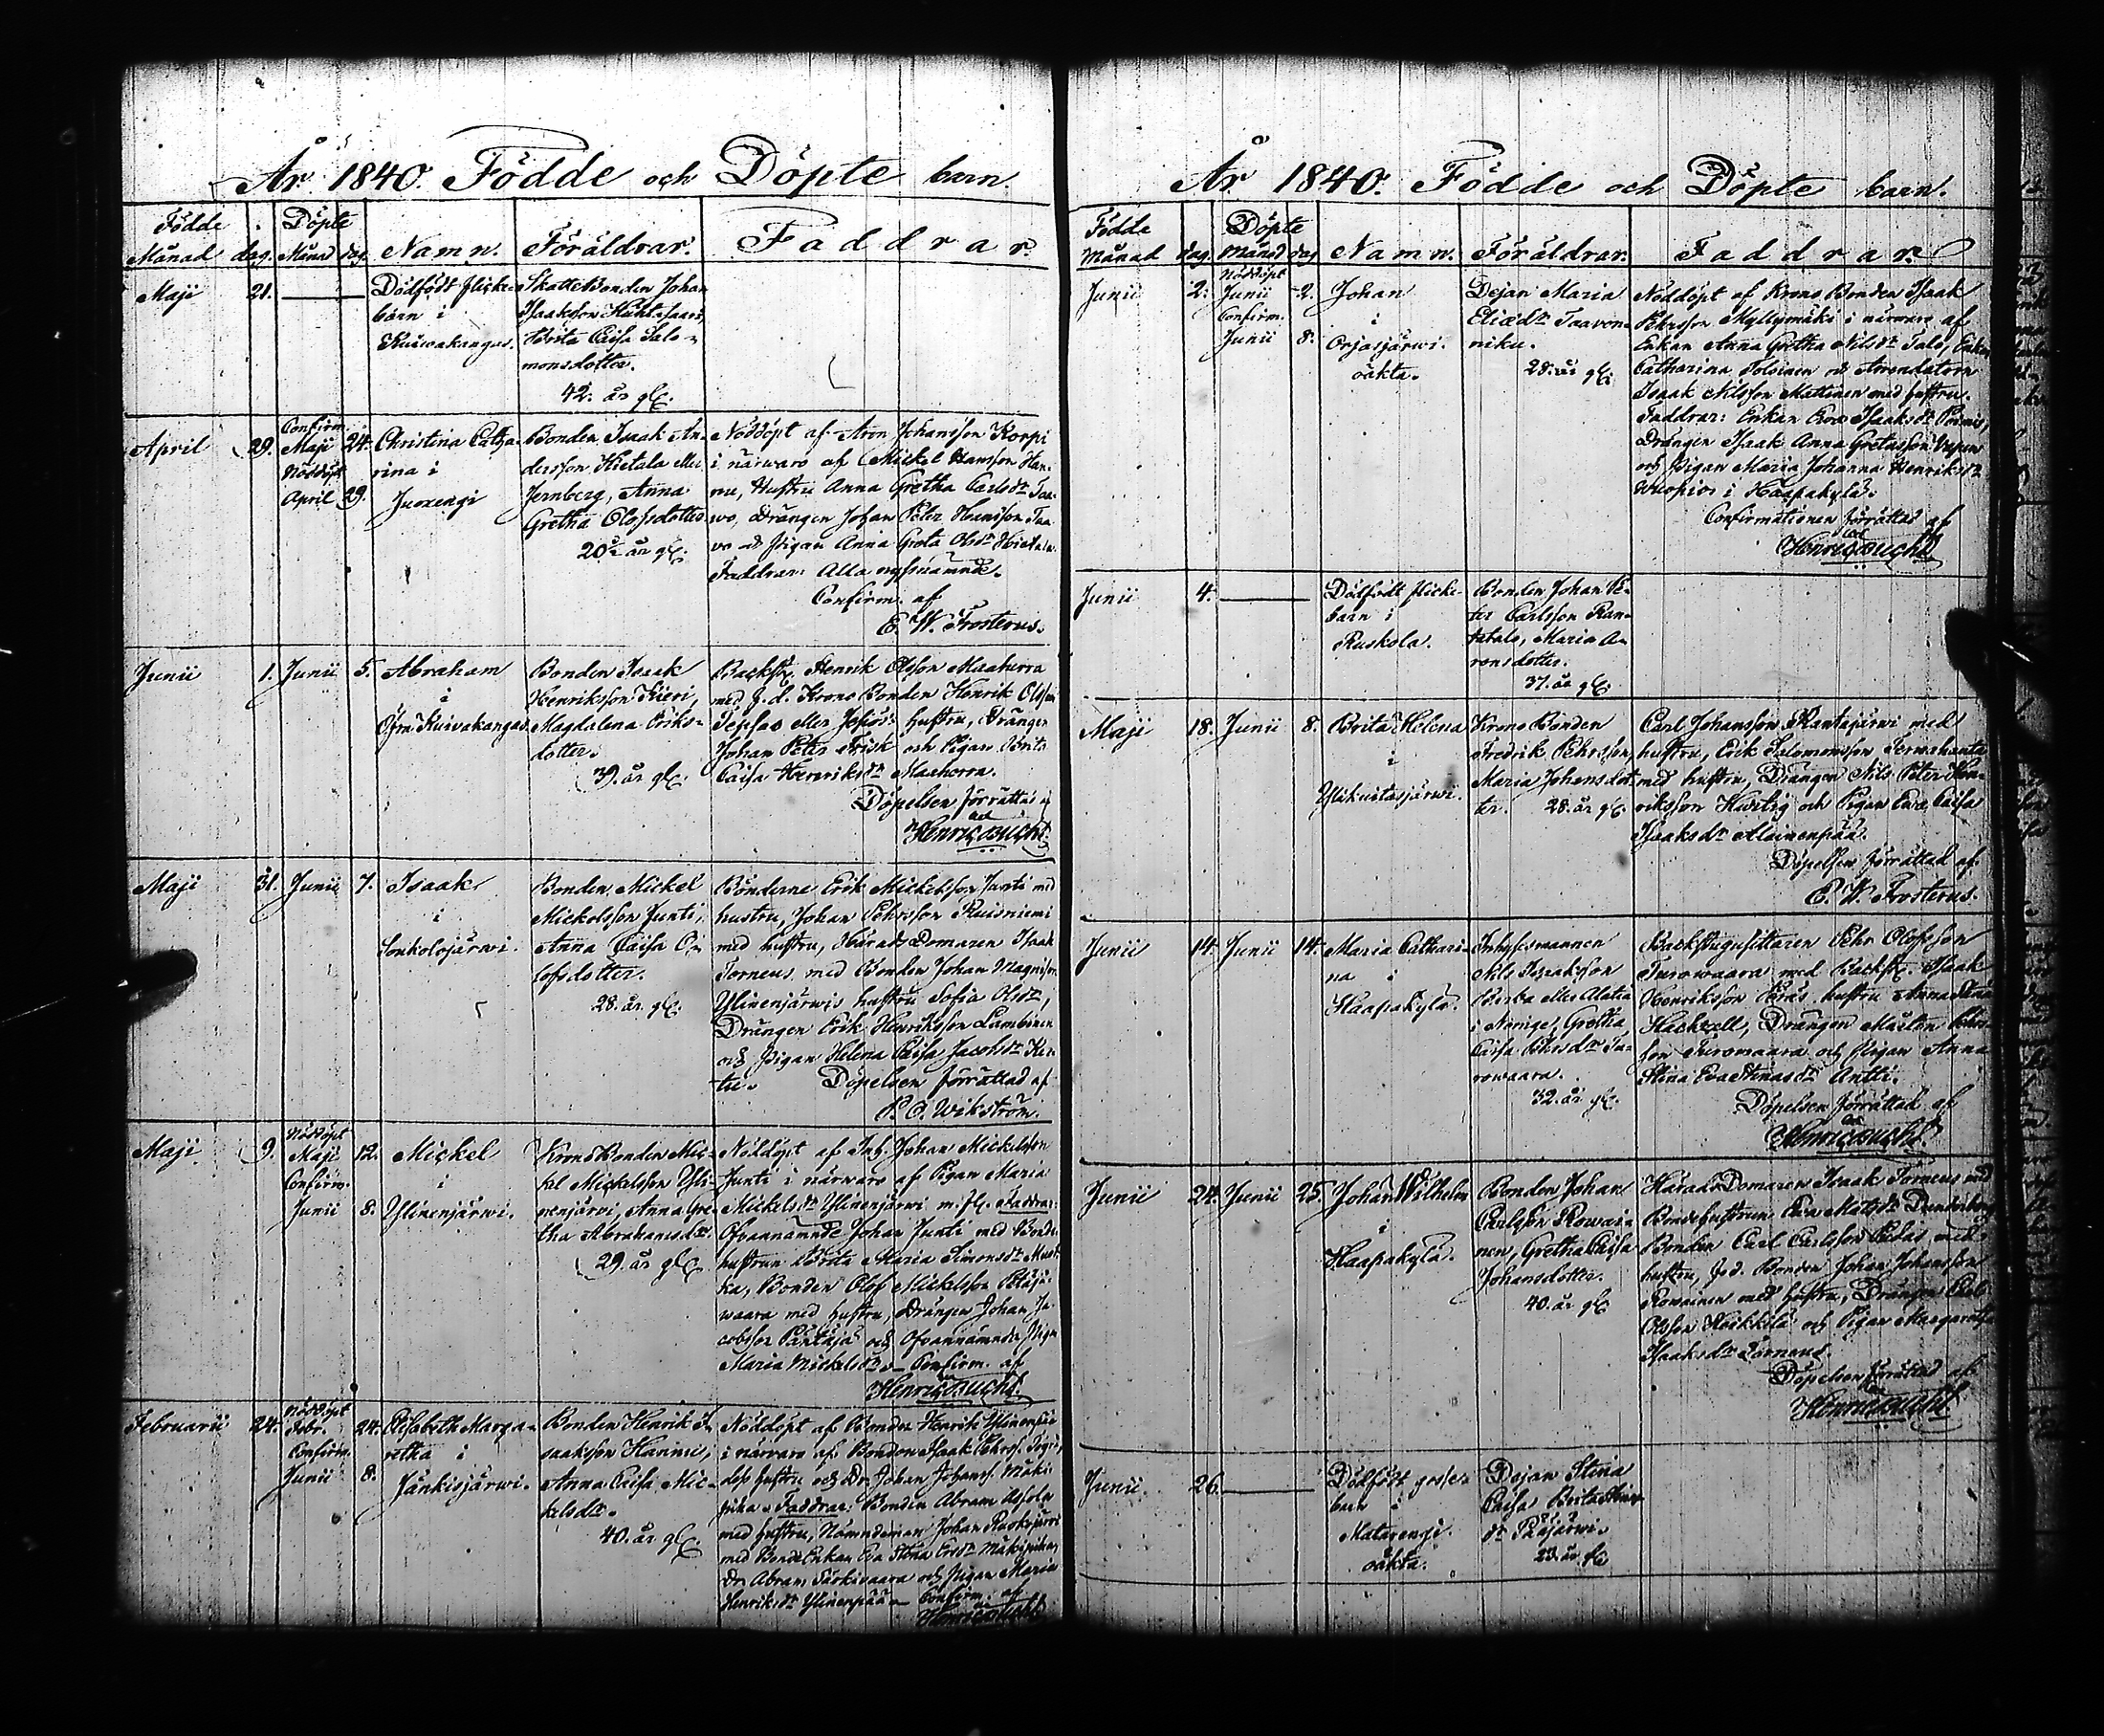 År 1840. Födde och Döpte barn.
Födde Döpte
Månad dag. Månad dag Namn. Föräldrar. Faddrar.
Maji 21. Dödfödt flicke-
barn i
Kuiwakangas.
SkatteBonden Johan
Isaaksson Huhtasaari,
Brita Caisa Salo-
monsdotter.
42. år gl.
April 29. Confirm.
Maji 24.
Nöddöpt
April 29.
Christina Catha-
rina i
Juoxengi
Bonden Isaak An-
dersson Hietala eller
Jernberg, Anna
Gretha Olofsdotter
20½ år gl.
Nöddöpt af Aron Johansson Korpi
i närwaro af Mickel Hansson Han-
nu, Hustru Anna Gretha Carlsdr Taa-
wo, Drängen Johan Peter Hansson Taa-
vo och Pigan Anna Greta Olsdr Hietala.
Faddrar: Alla nyssnämnde.
Confirm. af
E. W. Frosterus.
Junii 1. Junii 5. Abraham
i
Öfre Kuiwakangas
Bonden Isaak
Henriksson Kieri,
Magdalena Eriks-
dotter.
39. år gl.
Backst. Henrik Olsson Maaherra
med J. d. Krono Bonden Henrik Olsson
hustru, Drängen
Johan Peter Frisk och Pigan Brita
Caisa Henriksdr Maaherra.
Döpelsen förrättad af
Henric Bucht.
Maji 31. Junii 7. Isaak
i
Soukolojärwi.
Bonden Mickel
Mickelsson Junti,
Anna Caisa O-
lofsdotter.
28. år gl.
Bönderne Erik Mickelsson Junti med
hustru, Johan Pehrsson Ruisniemi
med hustru, HäradsDomaren Isaak
Torneus med Bonden Johan Magnisson
Ylinenjärwis hustru Sofia Olsdr,
Drängen Erik Henriksson Lambinen
och Pigan Helena Caisa Jacobsdr Ker-
tu. Döpelsen förrättad af
P. O. Wikström.
Maji 9. Nöddöpt
Maji 12.
Confirm.
Junii 8.
Mickel
i
Ylinenjärwi.
KronoBonden Mic-
kel Mickelsson Yli-
nenjärvi, Anna Gre-
tha Abrahamsdr.
29. år gl.
Nöddöpt af Inh. Johan Mickelsson
Junti i närwaro af Pigan Maria
Mickelsdr Ylinenjärwi m. fl. Faddrar:
Ofvannämnde Johan Junti med Bonde-
hustrun Brita Maria Simonsdr Must-
ka, Bonden Olof Mickelsson
waara med hustru, Drängen Johan Ja-
cobsson Pantaja och Ofvannämnde Pigan
Maria Mickelsdr. Confirm. af
Henric Bucht.
Februarii 24. Nöddöpt
Febr. 24.
Confirm.
Junii 8.
Elisabeth Marga-
retha i
Jänkisjärwi.
Bonden Henrik I-
saaksson Hannu,
Anna Caisa Mic-
kelsdr.
40. år gl.
Nöddöpt af Bonden Henrik Ylinenpää
i närwaro af Bonden Isaak Pehrss.
hustru och Dr. Johan Johanss. Mäki-
pika. Faddrar: Bonden Abram
med hustru, Nämndeman Johan Ruokojärwi
med BondeEnkan Eva Stina Ersdr Mäkipika,
Dr. Abram Särkiwaara och Pigan Maria
Henriksdr Ylinenpää. Confirm. af
Henric Bucht
År 1840. Födde och Döpte barn.
Födde Döpte
Månad dag. Månad dag Namn. Föräldrar. Faddrar.
Junii 2. Nöddöpt
Junii 2.
Confirm.
Junii 8.
Johan
i
Orjasjärwi.
oäkta.
Dejan Maria
Eliædr Taavon-
niku.
28. år gl.
Nöddöpt af Krono Bonden Isaak
Pehrsson Myllymäki i närwaro af
Enkan Anna Gretha Nilsdr Talo, Enkan
Catharina Tolonen och Arrendatorn
Isaak Nilsson Mattinen med hustru.
Faddrar: Enkan Eva Isaksdr
Drängen Isaak Anna Gretasson
och Pigan Maria Johanna Henriksdr
Wuopio i Haapakylä.
Confirmationen förrättad af
Henric Bucht
Junii 4. Dödfödt flicke-
barn i
Ruskola.
Bonden Johan Pe-
ter Carlsson Ran-
tatalo, Maria A-
ronsdotter.
37. år gl.
Maji 18. Junii 8. Brita Helena
i
Ylikuitasjärwi.
Krono Bonden
Fredrik Pehrsson,
Maria Johansdot-
ter. 28. år gl.
Carl Johansson Rantajärwi med
hustru, Erik Salomonsson Terwahauta
med hustru, Drängen Nils Peter Hen-
riksson Hurtig och Pigan Eva Caisa
Isaaksdr Alainenpää.
Döpelsen förrättad af
E. W. Frosterus.
Junii 14. Junii 14. Maria Cathari-
na i
Haapakylä.
Inhysesmannen
Nils Issaksson
eller Alatia
i Norige, Gretha
Caisa Pehrsdr Tu-
rowaara.
32. år gl.
Backstugusittaren Pehr Olofsson
Turowaara med Backst. Isaak
Henriksson hustru Anna Stina
Hackzell, Drängen Mårten Pehrs-
son Turowaara och Pigan Anna
Stina EvaStinasdr Antti.
Döpelsen förrättad af
Henric Bucht
Junii 24. Junii 25. Johan Wilhelm
i
Haapakylä.
Bonden Johan
Carlsson Rowai-
nen, Gretha Caisa
Johansdotter.
40. år gl.
HäradsDomaren Isaak Torneus med
Bondehustrun Eva Matsdr Dunderberg,
Bonden Carl Carlsson med
hustru, Jod. Bonden Johan Johansson
Rowainen med hustru, Drängen Carl
Olsson Heikkilä och Pigan Margaretha
Isaaksdr Torneus.
Döpelsen förrättad af
Henric Bucht
Junii 26. Dödfödt gosse-
barn i
Matarengi.
oäkta.
Dejan Stina
Caisa BritaStina-
dr Pääjärwi.
23. år gl.